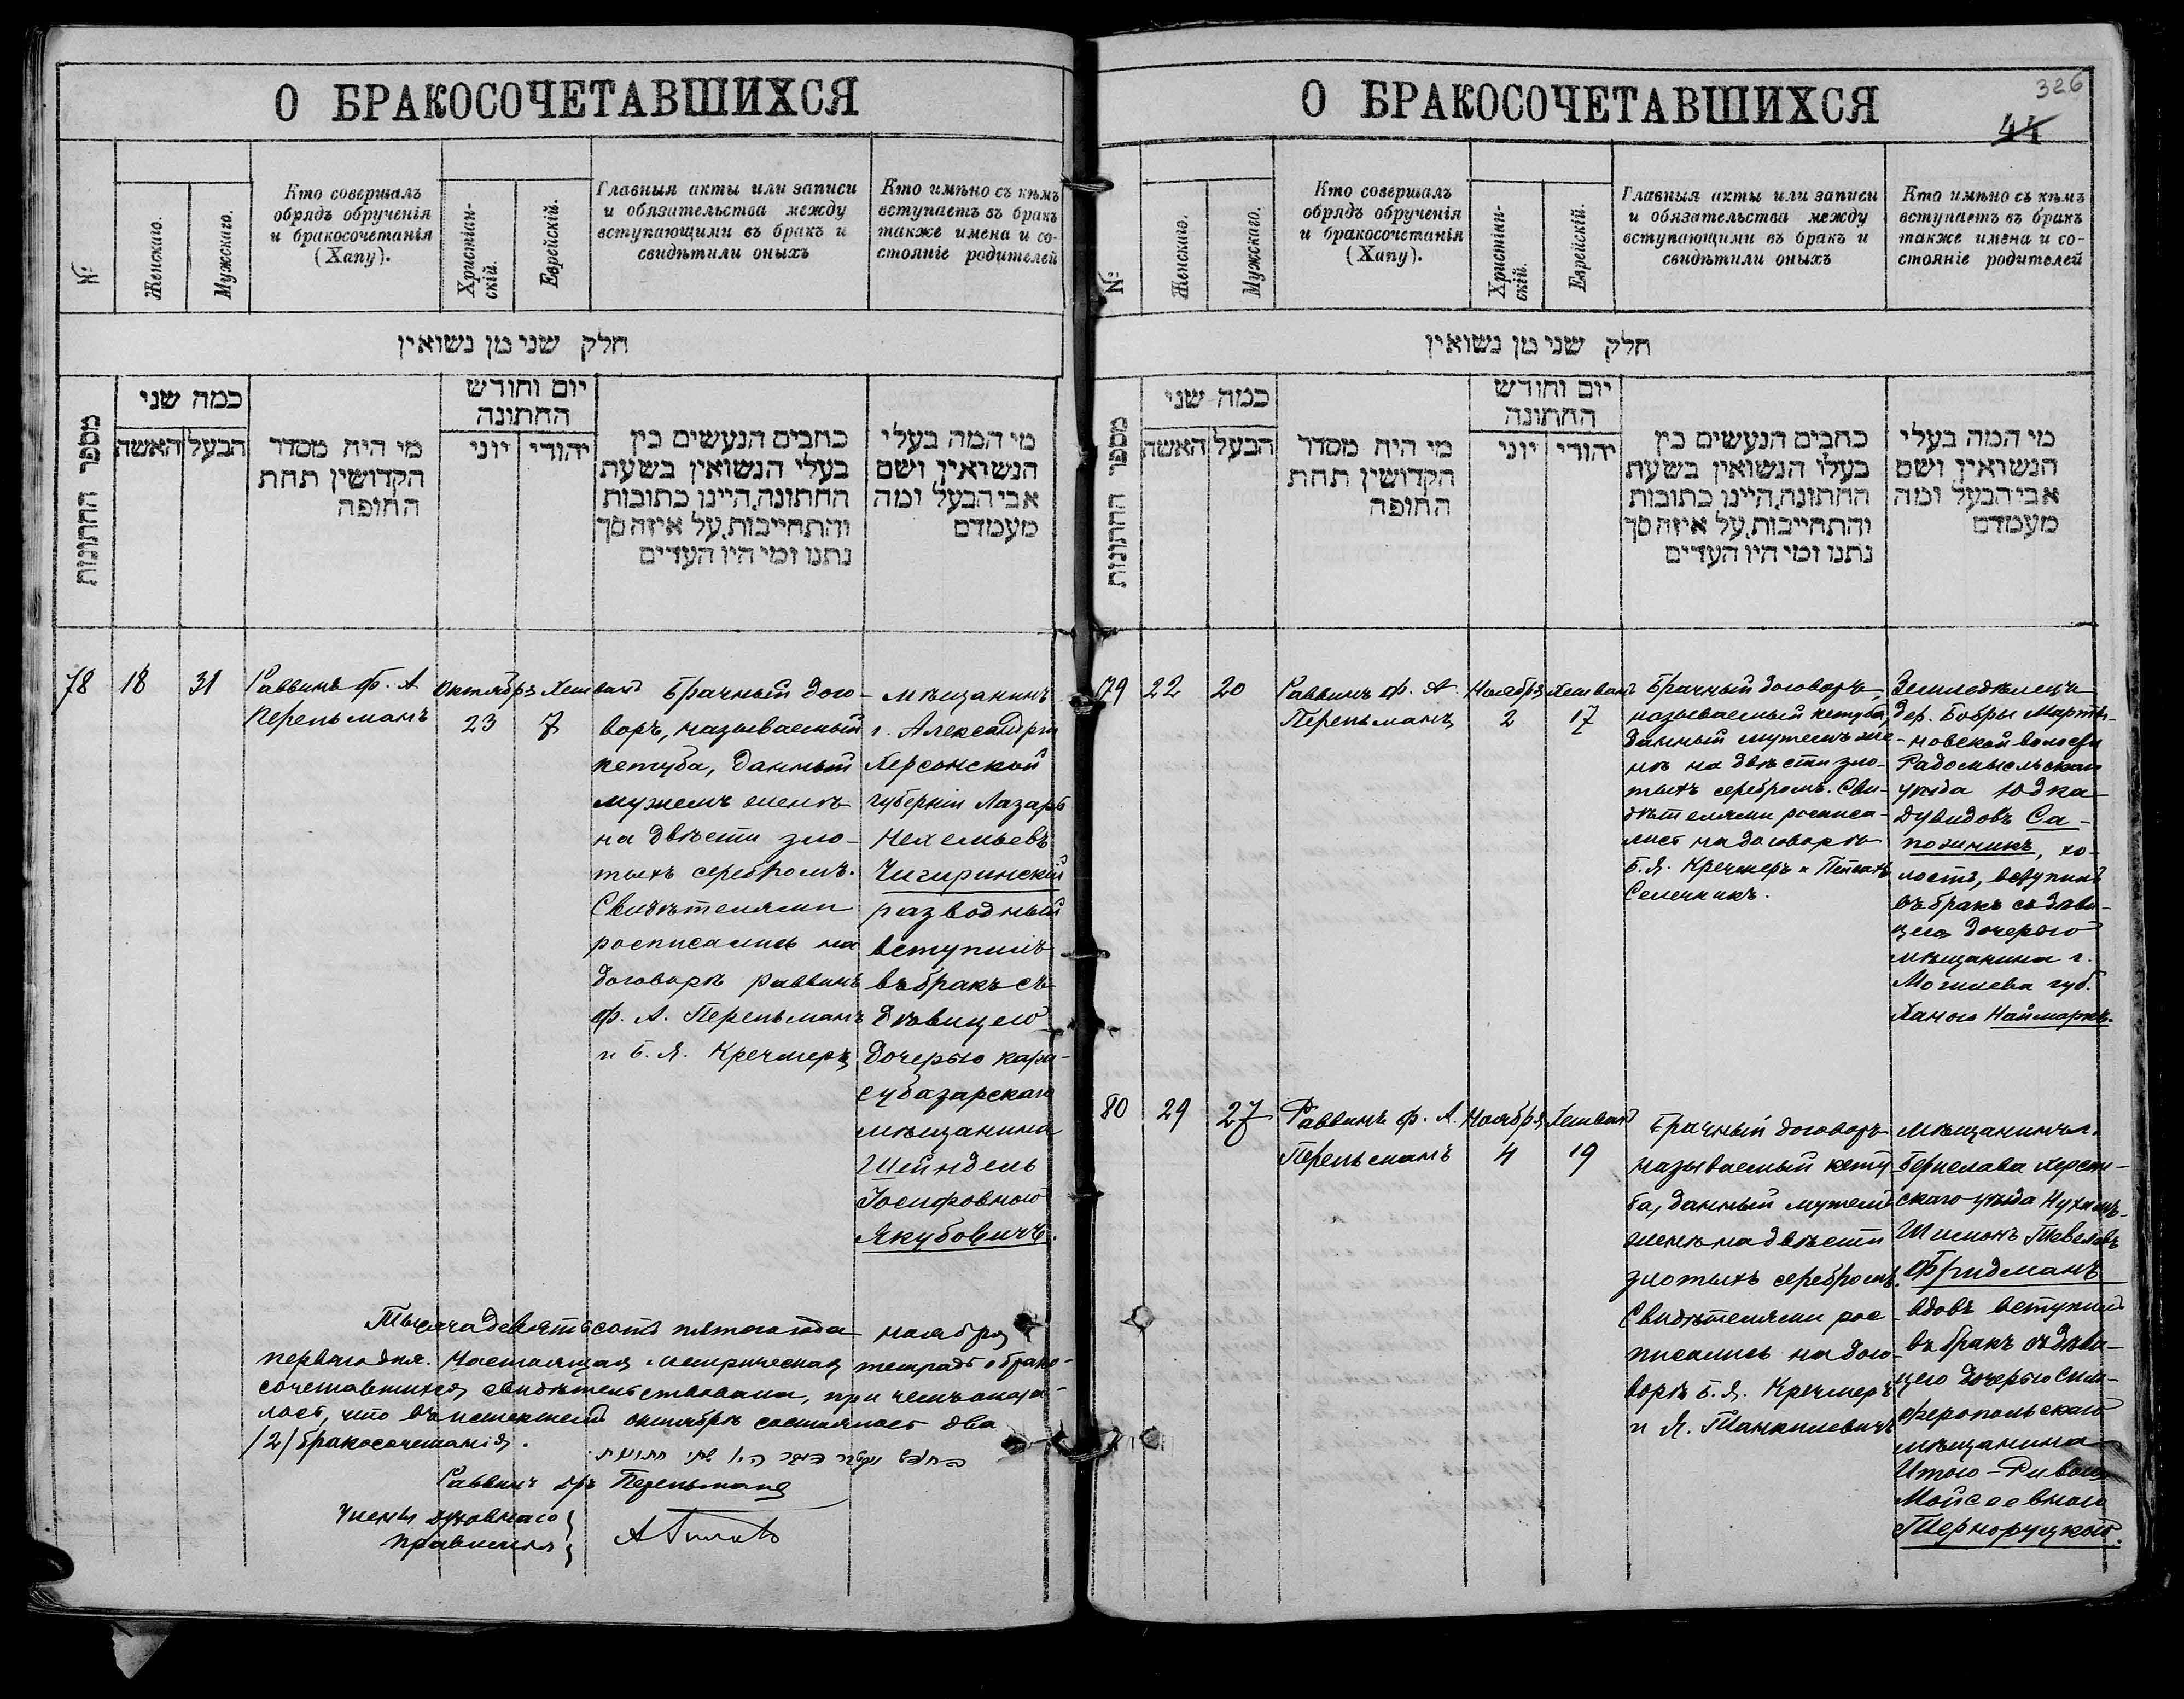 О БРАКОСОЧЕТАВШИХСЯ
№
Женскаго.
Мужскаго.
Кто совершалъ
обрядъ обрученія
и бракосочетанія
(Хапу).
Христіан-
скій.
Еврейскій.
Главныя акты или записи
и обязательства между
вступающими въ бракъ и
свидѣтили оныхъ
Кто имѣно съ кѣмъ
вступаетъ въ бракъ
также имена и со-
стояніе родителей
חלק שני מן נשואין
מספר החתונות
כמה שני
האשה
הבעל
מי היה מסדר
הקדושין תחת
החופה
יום וחודש
החתונה
יוני
יהודי
כתבים הנעשים בין
בעלי הנשואין בשעת
החתונה, היינו כתובות
והתחייבות, על איזה סך
נתנו ומי היו העדים
מי המה בעלי
הנשואין ושם
אבי הבעל ומה
מעמדם
78
18
31
Раввинъ Ф. А
Перельманъ
Октябрь
23
Хешванъ
7
Брачный дого-
воръ, называемый
кетуба, данный
мужемъ женѣ
на двѣсти зло-
тыхъ серебромъ.
Свидѣтелями
росписались на
договорѣ раввинъ
Ф. А. Перельманъ
и Б. Я. Кречмеръ
мѣщанинъ
г. Александріи
Херсонской
губерніи Лазарь
Нехемьевъ
Чигиринскій
разводный
вступилъ
въ бракъ съ
дѣвицею
дочерью кара-
субазарскаго
мѣщанина
Шейндель
Іосифовною
Якубовичъ.
Тысяча девятьсотъ пятаго года ноября
перваго дня. Настоящая метрическая тетрадь о брако-
сочетавшихся свидѣтельствована, при чемъ оказа-
лось, что въ истекшемъ октябрѣ состоялось два
/2/ бракосочетанія.
Раввинъ Перельманъ
Члены духовнаго
правленія
О БРАКОСОЧЕТАВШИХСЯ
326
44
№
Женскаго.
Мужскаго.
Кто совершалъ
обрядъ обрученія
и бракосочетанія
(Хапу).
Христіан-
скій.
Еврейскій.
Главныя акты или записи
и обязательства между
вступающими въ бракъ и
свидѣтили оныхъ
Кто имѣно съ кѣмъ
вступаетъ въ бракъ
также имена и со-
стояніе родителей
חלק שני מן נשואין
מספר החתונות
כמה שני
האשה
הבעל
מי היה מסדר
הקדושין תחת
החופה
יום וחודש
החתונה
יוני
יהודי
כתבים הנעשים בין
בעלי הנשואין בשעת
החתונה, היינו כתובות
והתחייבות, על איזה סך
נתנו ומי היו העדים
מי המה בעלי
הנשואין ושם
אבי הבעל ומה
מעמדם
79
22
20
Раввинъ Ф. А.
Перельманъ
Ноябрь
2
Хешванъ
17
Брачный договоръ
называемый кетуба,
данный мужемъ же-
нѣ на двѣсти зло-
тыхъ серебромъ. Сви-
дѣтелями росписа-
лись на договорѣ
Б. Я. Кречмеръ и
Селечникъ.
Земледѣлецъ
дер. Бобры Марты-
новской волости
Радомысльскаго
уѣзда Юдка
Дувидовъ Са-
пожникъ, хо-
лостъ, вступилъ
въ бракъ съ дѣви-
цею дочерью
мѣщанина г.
Могилева губ.
Ханою Наймаркъ.
80
29
27
Раввинъ Ф. А.
Перельманъ
Ноябрь
4
Хешванъ
19
Брачный договоръ
называемый кету-
ба, данный мужемъ
женѣ на двѣсти
злотыхъ серебромъ.
Свидѣтелями рос-
писались на дого-
ворѣ Б. Я. Кречмеръ
и Я. Танкилевичъ
мѣщанинъ г.
Берислава Херсон-
скаго уѣзда Нухимъ-
Шимонъ Тевелевъ
Фридманъ
вдовъ вступилъ
въ бракъ съ дѣви-
цею дочерью сим-
феропольскаго
мѣщанина
Итою-Ривою
Мойсеевною
Терноруцкой.